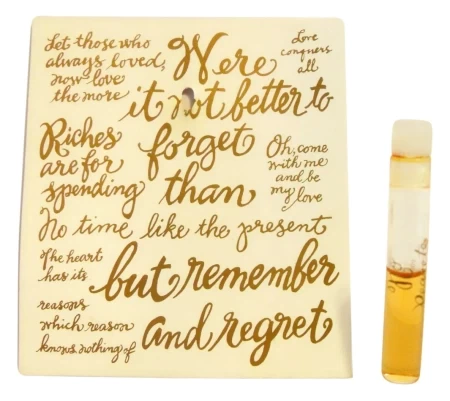 Let those who
always loved,
now love
the more
Were
it not better to
forget
than
Love
conquers
all
Riches
are for
spending
Oh, come
with me
and be
my love
No time like the present
The heart
has its
reasons
which reason
knows nothing of
but remember
and regret